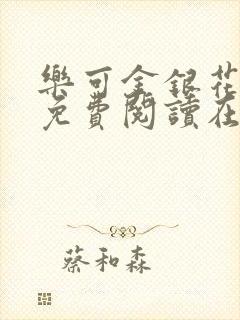 樂可金銀花
免費閱讀在
蔡和森